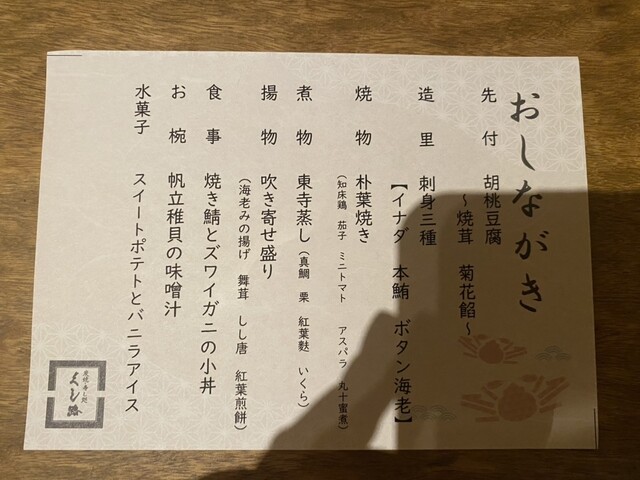 おしながき
先付 胡桃豆腐
～焼茸 菊花餡～
造里 刺身三種
【イナダ 本鮪 ボタン海老】
焼物 朴葉焼き
（知床鶏 茄子 ミニトマト アスパラ 丸十蜜煮）
煮物 東寺蒸し（真鯛 栗 紅葉麩 いくら）
揚物 吹き寄せ盛り
（海老みの揚げ 舞茸 しし唐 紅葉煎餅）
食事 焼き鯖とズワイガニの小丼
お椀 帆立稚貝の味噌汁
水菓子 スイートポテトとバニラアイス